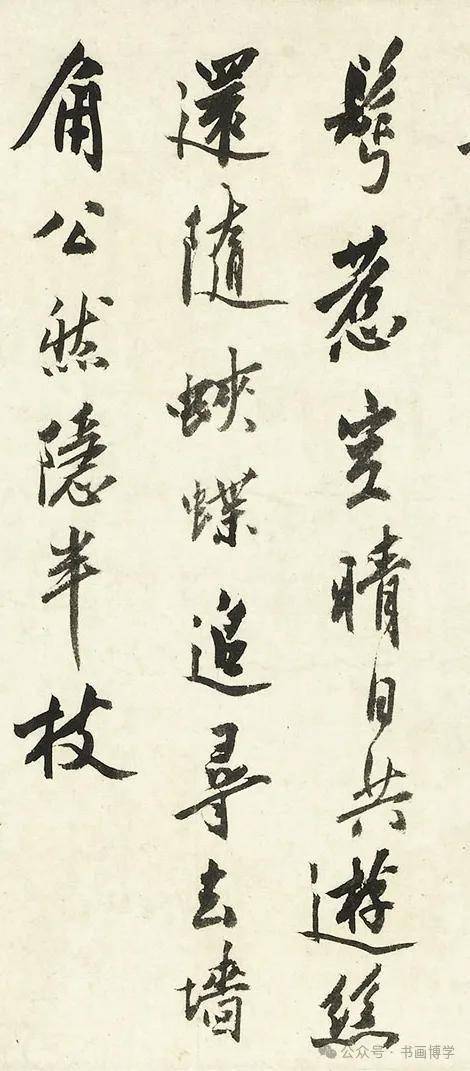 鬢惹空晴日共遊絲
還隨蛺蝶追尋去墻
角公然隱半枝
公众号·书画博学